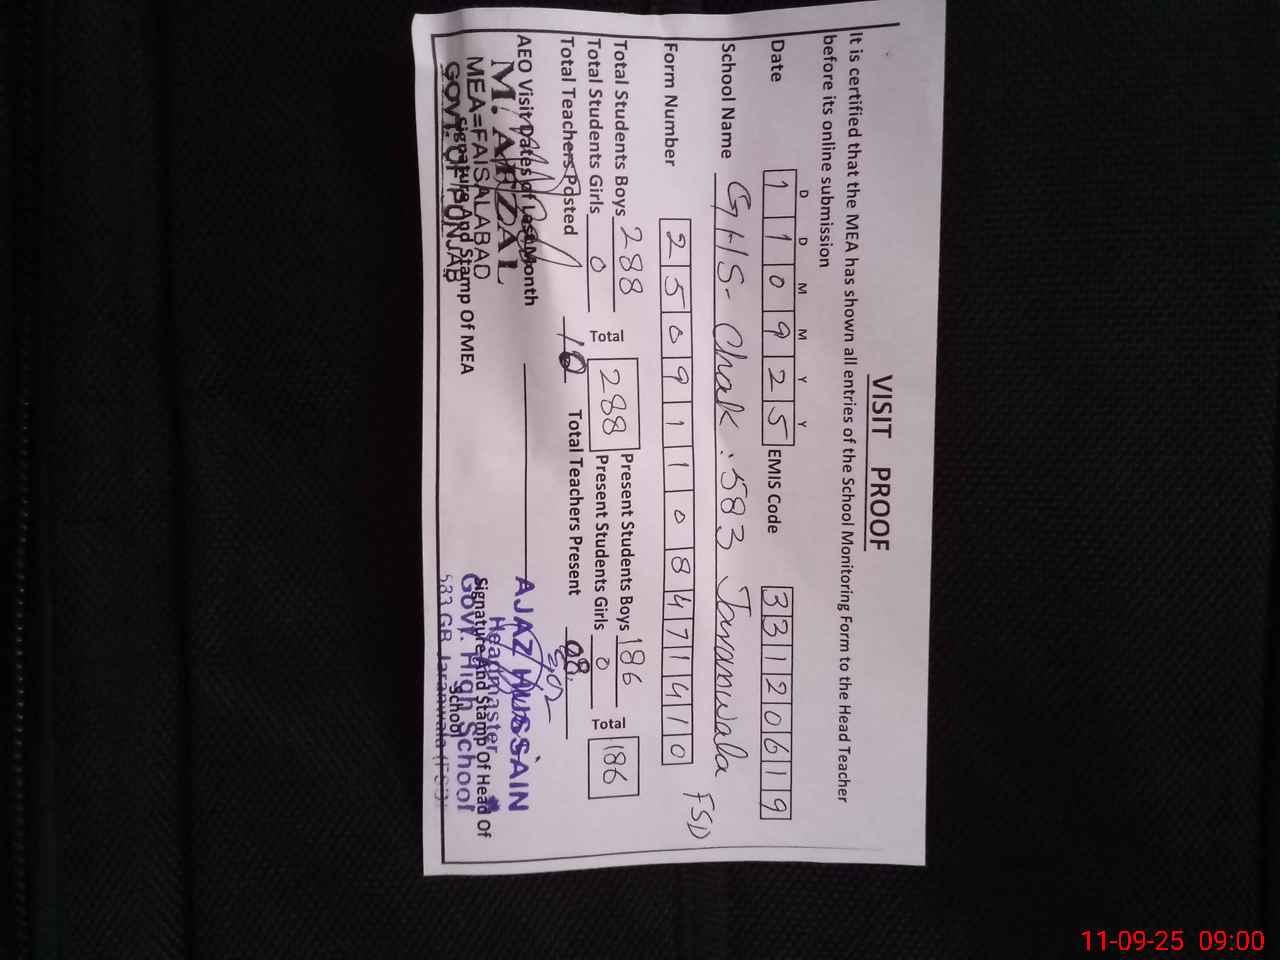 VISIT PROOF
It is certified that the MEA has shown all entries of the School Monitoring Form to the Head Teacher
before its online submission
D D M M Y Y
Date 1 1 0 9 2 5 EMIS Code 3 3 1 2 0 6 1 9
School Name GHS- Chak : 583 Jaranwala FSD
Form Number 2 5 0 9 1 1 0 8 4 7 1 4 1 0
Total Students Boys 288 Total 288 Present Students Boys 186 Total 186
Total Students Girls 0 Present Students Girls 0
Total Teachers Posted 10 Total Teachers Present 08
AEO Visit Dates of Last Month
M. AFZAL
MEA=FAISALABAD
GOVT: OF PUNJAB
Signature And Stamp Of MEA
AJAZ HUSSAIN
Headmaster
Govt. High School
583 GB Jaranwala (FSD)
Signature And Stamp Of Head Of
School
11-09-25 09:00